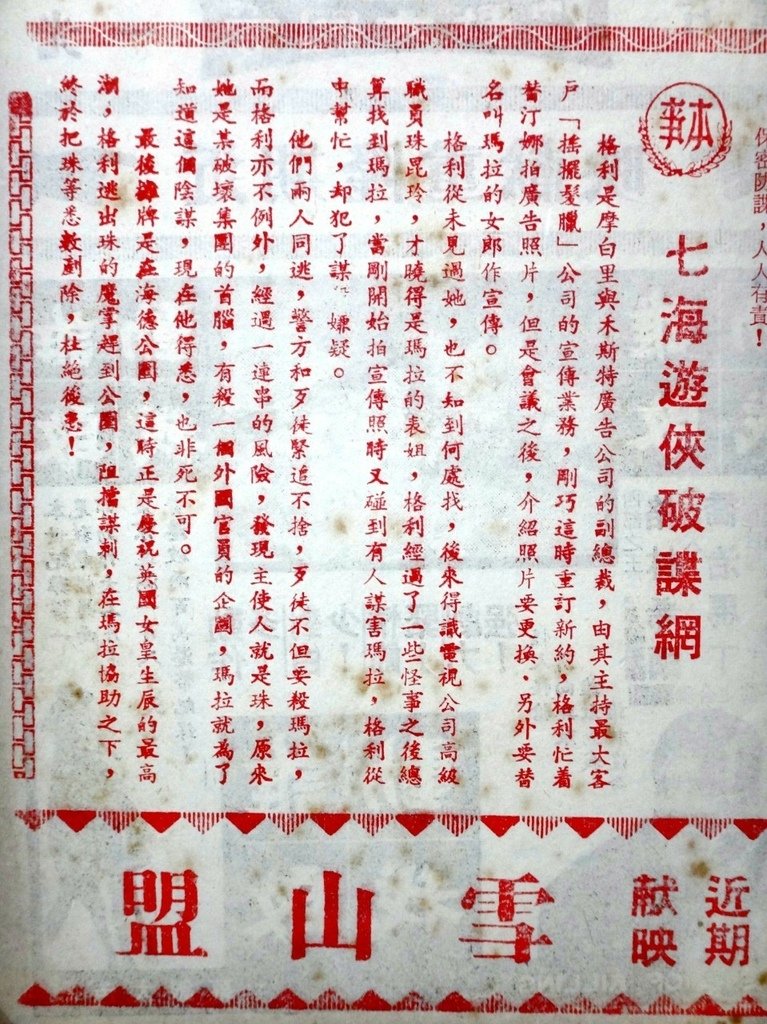 保密防諜，人人有責！
本事
七海遊俠破諜網
格利是摩白里與木斯特廣告公司的副總裁，由其主持最大客
戶「搖擺髮臘」公司的宣傳業務，剛巧這時重訂新約，格利忙着
替汀娜拍廣告照片，但是會議之後，介紹照片要更換，另外要替
名叫瑪拉的女郎作宣傳。
格利從未見過她，也不知到何處找，後來得識電視公司高級
職員珠毘玲，才曉得是瑪拉的表姐，格利經過了一些怪事之後總
算找到瑪拉，當剛開始拍宣傳照時又碰到有人謀害瑪拉，格利從
中幫忙，却犯了謀　嫌疑。
他們兩人同逃，警方和歹徒緊追不捨，歹徒不但要殺瑪拉，
而格利亦不例外，經過一連串的風險，發現主使人就是珠，原來
她是某破壞集團的首腦，有殺一個外國官員的企圖，瑪拉就為了
知道這個陰謀，現在他得悉，也非死不可。
最後攤牌是在海德公園，這時正是慶祝英國女皇生辰的最高
潮，格利逃出珠的魔掌趕到公園，阻擋謀刺，在瑪拉協助之下，
終於把珠等悉數剷除，杜絕後患！
近期
献映
雪山盟